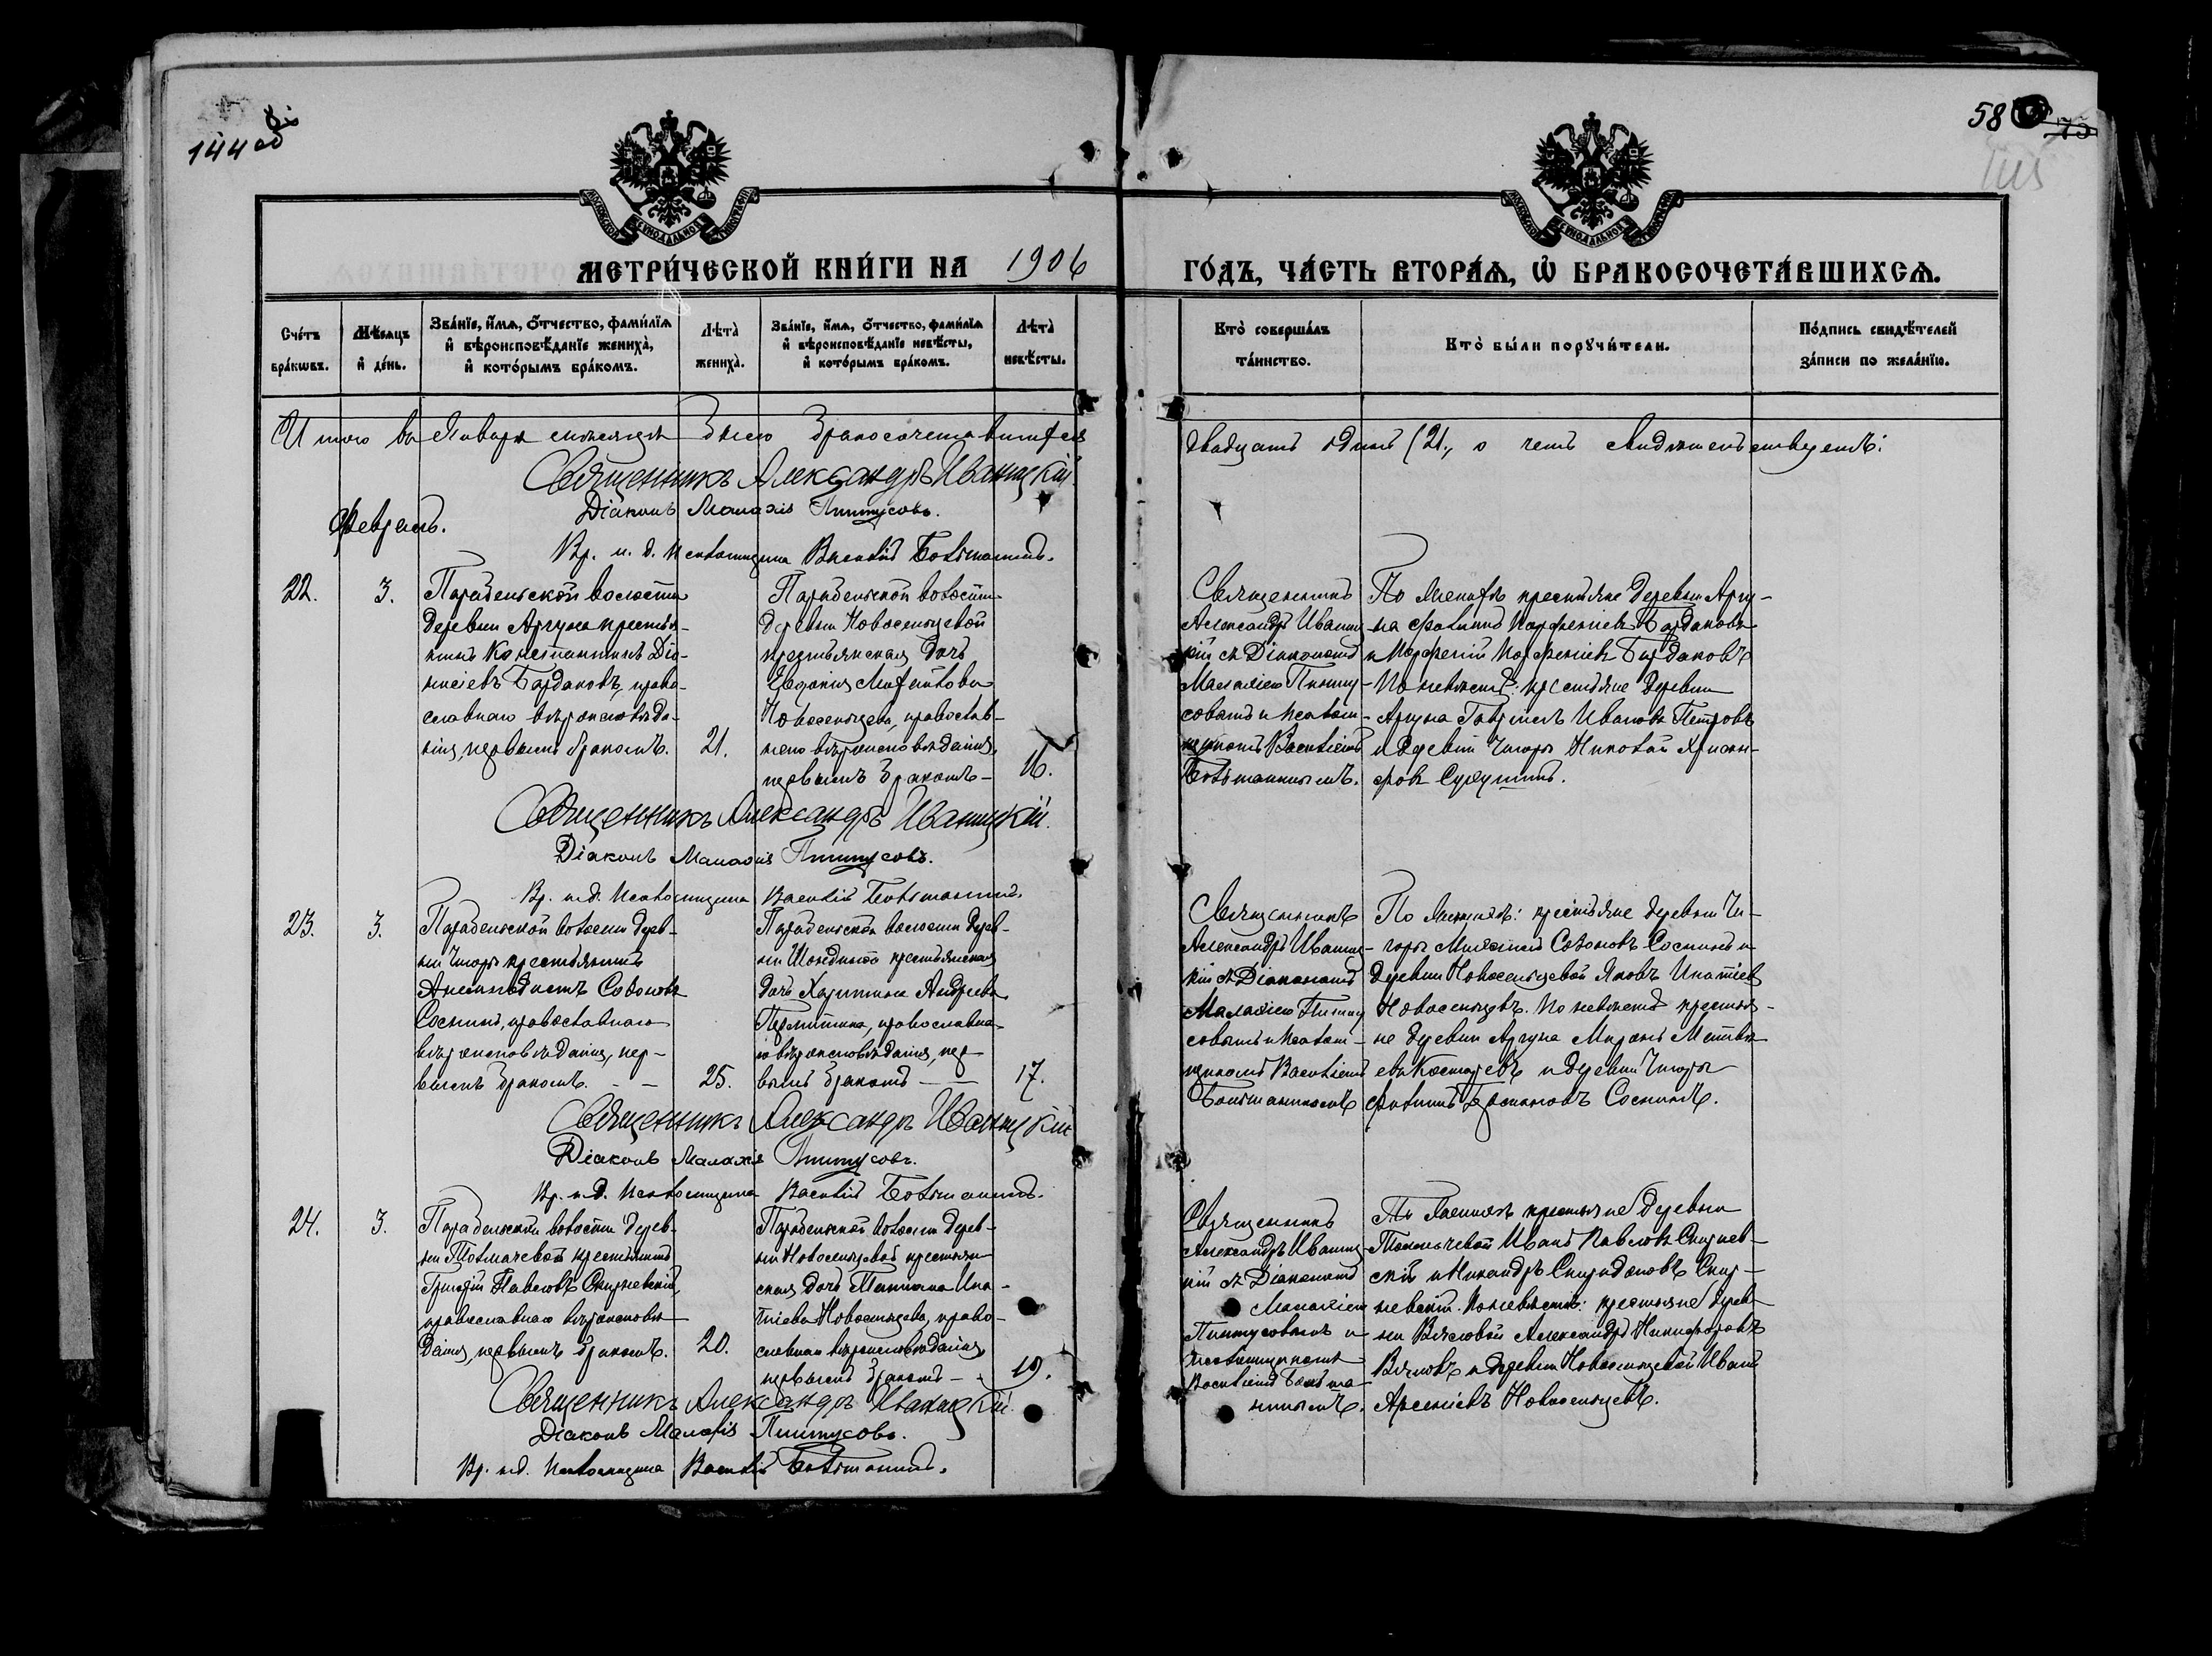 144 об
58
МЕТРИ́ЧЕСКОЙ КНИ́ГИ НА 1906 ГО́ДЪ, ЧА́СТЬ ВТОРА́Ѧ, Ѽ БРАКОСОЧЕТА́ВШИХСѦ.
Сче́тъ бра́кѡвъ.
Мѣ́сѧцъ и҆ де́нь.
Зва́нїе, и҆́мѧ, ѻ҆́тчество, фамѝлїѧ и҆ вѣроисповѣ́данїе жениха̀, и҆ кото́рымъ бра́комъ.
Лѣта̀ жениха̀.
Зва́нїе, и҆́мѧ, ѻ҆́тчество, фамѝлїѧ и҆ вѣроисповѣ́данїе невѣ́сты, и҆ кото́рымъ бра́комъ.
Лѣта̀ невѣ́сты.
Кто̀ соверша́лъ та́инство.
Кто̀ бы́ли порꙋчи́тели.
По́дпись свидѣ́телей за́писи по жела́нїю.
Итого въ Январѣ мѣсяцѣ было бракосочетавшихся двадцать одинъ (21), о чемъ свидѣтельствуемъ:
Священникъ Александръ Иваницкій
Діаконъ Малахія Пинтусовъ.
Февраль.
Вр. и. д. Псаломщика Василій Ботьманинъ.
22.
3.
Парабельской волости
деревни Аргуна крестья-
нинъ Константинъ Діо-
нисіевъ Бардаковъ, право-
славнаго вѣроисповѣда-
нія, первымъ бракомъ.
21.
Парабельской волости
деревни Новосельцевой
крестьянская дочь
Евдокія
Новосельцева, православ-
наго вѣроисповѣданія,
первымъ бракомъ -
16.
Священникъ
Александръ Иваниц-
кій съ Діакономъ
Малахіею Пинту-
совымъ и Псалом-
щикомъ Василіемъ
Ботьманинымъ.
По женихѣ крестьяне деревни Аргу-
на Филиппъ Парфеніевъ Бардаковъ
и Парфеній Бардаковъ
По невѣстѣ: крестьяне деревни
Аргуна Гавріилъ Ивановъ Петровъ
и деревни Чигоры Николай Хрисан-
фовъ Сухушинъ.
Священникъ Александръ Иваницкій.
Діаконъ Малахія Пинтусовъ.
Вр. и. д. Псаломщика Василій Ботьманинъ.
23.
3.
Парабельской волости дерев-
ни Чигоры крестьянинъ
Анемподистъ Созоновъ
Соснинъ, православнаго
вѣроисповѣданія, пер-
вымъ бракомъ. - -
25.
Парабельской волости дерев-
ни крестьянская
дочь Харитина Андреева
православна-
го вѣроисповѣданія, пер-
вымъ бракомъ - -
17.
Священникъ
Александръ Иваниц-
кій съ Діакономъ
Малахіею Пинту
совымъ и Псалом-
щикомъ Василіемъ
Ботьманинымъ
По женихѣ: крестьяне деревни Чи-
горы Созоновъ Соснинъ и
деревни Новосельцевой Яковъ Игнатіевъ
Новосельцевъ. По невѣстѣ крестья-
не деревни Аргуна Миронъ Матвѣ-
евъ Костаревъ и деревни Чигоры
Филиппъ Соснинъ.
Священникъ Александръ Иваницкій
Діаконъ Малахія Пинтусовъ.
Вр. и. д. Псаломщика Василій Ботьманинъ.
24.
3.
Парабельской волости дерев-
ни Толмачевой крестьянинъ
Григорій Павловъ Скирневскій,
православнаго вѣроисповѣ-
данія, первымъ бракомъ.
20.
Парабельской волости дерев-
ни Новосельцевой крестьян-
ская дочь Татіана Игна-
тіева Новосельцева, право-
славнаго вѣроисповѣданія,
первымъ бракомъ - -
19.
Священникъ
Александръ Иваниц-
кій съ Діакономъ
Малахіею
Пинтусовымъ и
Псаломщикомъ
Василіемъ Ботьма-
нинымъ.
По женихѣ крестьяне деревни
Толмачевой Иванъ Павловъ Скирнев-
скій и Никандръ Спиридоновъ Скир-
невскій. По невѣстѣ: крестьяне дерев-
ни Вяловой Александръ Никифоровъ
Вяловъ и деревни Новосельцевой Иванъ
Арсеніевъ Новосельцевъ.
Священникъ Александръ Иваницкій
Діаконъ Малахія Пинтусовъ.
Вр. и. д. Псаломщика Василій Ботьманинъ.